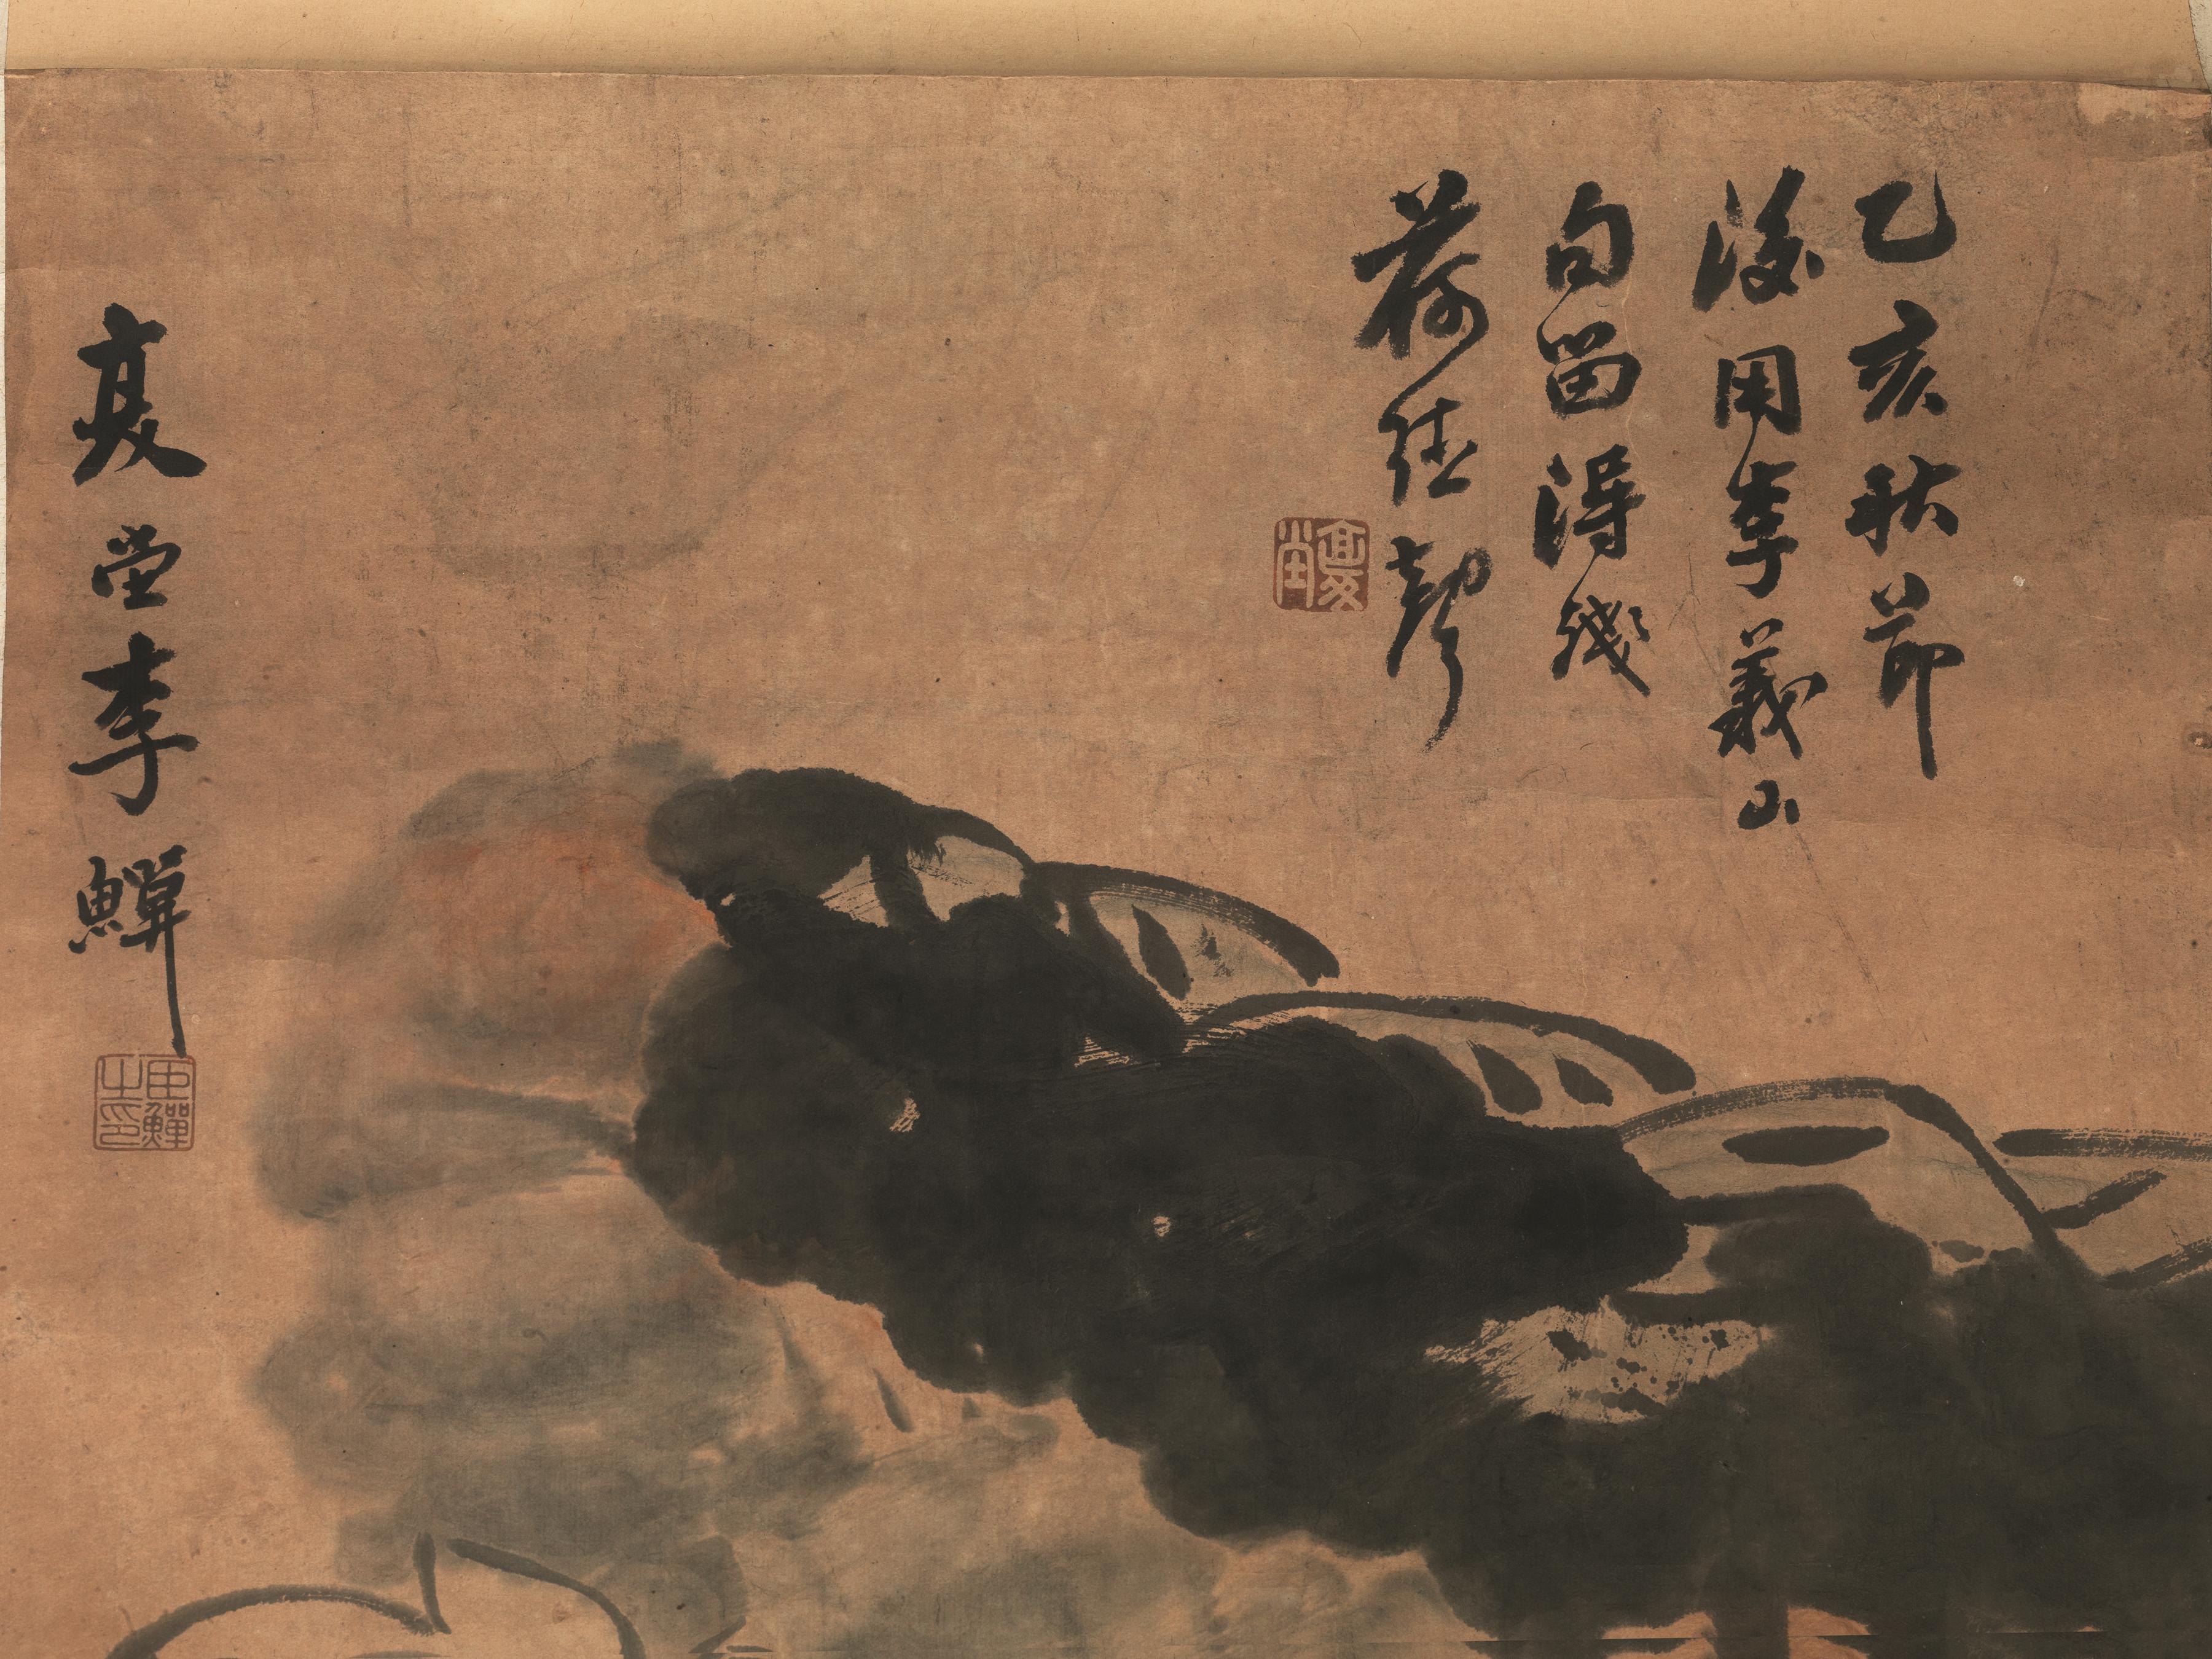 乙亥秋節
後用李義山
句留得殘
荷聽聲
复堂
复堂李鱓
臣鱓之印